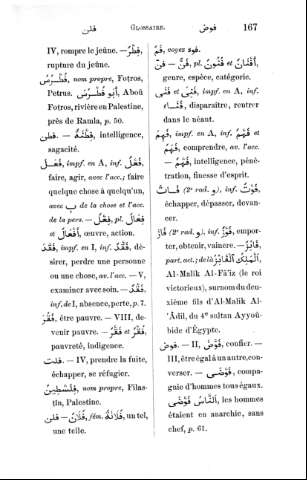 فلن
GLOSSAIRE.
فوض
167
IV, rompre le jeûne. — فِطْرٌ,
rupture du jeûne.
فُطْرُسُ, nom propre, Foṭros,
Petrus. أَبُو فُطْرُسَ, Aboû
Foṭros, rivière en Palestine,
près de Ramla, p. 50.
فطن. — فِطْنَةٌ, intelligence,
sagacité.
فَعَلَ, impf. en A, inf. فَعْلٌ,
faire, agir, avec l'acc.; faire
quelque chose à quelqu'un,
avec بِ de la chose et l'acc.
de la pers. — فِعْلٌ, pl. فِعَالٌ
et أَفْعَالٌ, œuvre, action.
فَقَدَ, impf. en I, inf. فَقْدٌ, dé-
sirer, perdre une personne
ou une chose, av. l'acc. — V,
examiner avec soin. — فَقْدٌ,
inf. de I, absence, perte, p. 7.
فَقُرَ, être pauvre. — VIII, de-
venir pauvre. — فَقْرٌ et فُقْرٌ,
pauvreté, indigence.
فلت. — IV, prendre la fuite,
échapper, se réfugier.
فِلَسْطِينُ, nom propre, Filas-
tîn, Palestine.
فلن — فُلَانٌ, fém. فُلَانَةُ, un tel,
une telle.
فَمٌ, voyez فوه.
فنّ — فَنٌّ, pl. فُنُونٌ et أَفْنَانٌ,
genre, espèce, catégorie.
فَنَى et فَنِىَ, impf. en A, inf.
فَنَاءٌ, disparaître, rentrer
dans le néant.
فَهِمَ, impf. en A, inf. فَهْمٌ et
فَهَمٌ, comprendre, av. l'acc.
— فَهْمٌ, intelligence, péné-
tration, finesse d'esprit.
فَاتَ (2e rad. و), inf. فَوْتٌ,
échapper, dépasser, devan-
cer.
فَازَ (2e rad. و), inf. فَوْزٌ, empor-
ter, obtenir, vaincre. — فَائِزٌ,
part. act.; de là اَلْمَلِكُ الْفَائِزُ,
Al-Malik Al-Fâ'iz (le roi
victorieux), surnom du deu-
xième fils d'Al-Malik Al-
'Âdil, du 4e sultan Ayyoû-
bide d'Égypte.
فوض. — II, فَوَّضَ, confier. —
III, être égal à un autre, con-
verser. — فَوْضَى, compa-
gnie d'hommes tous égaux.
اَلنَّاسُ فَوْضَى, les hommes
étaient en anarchie, sans
chef, p. 61.